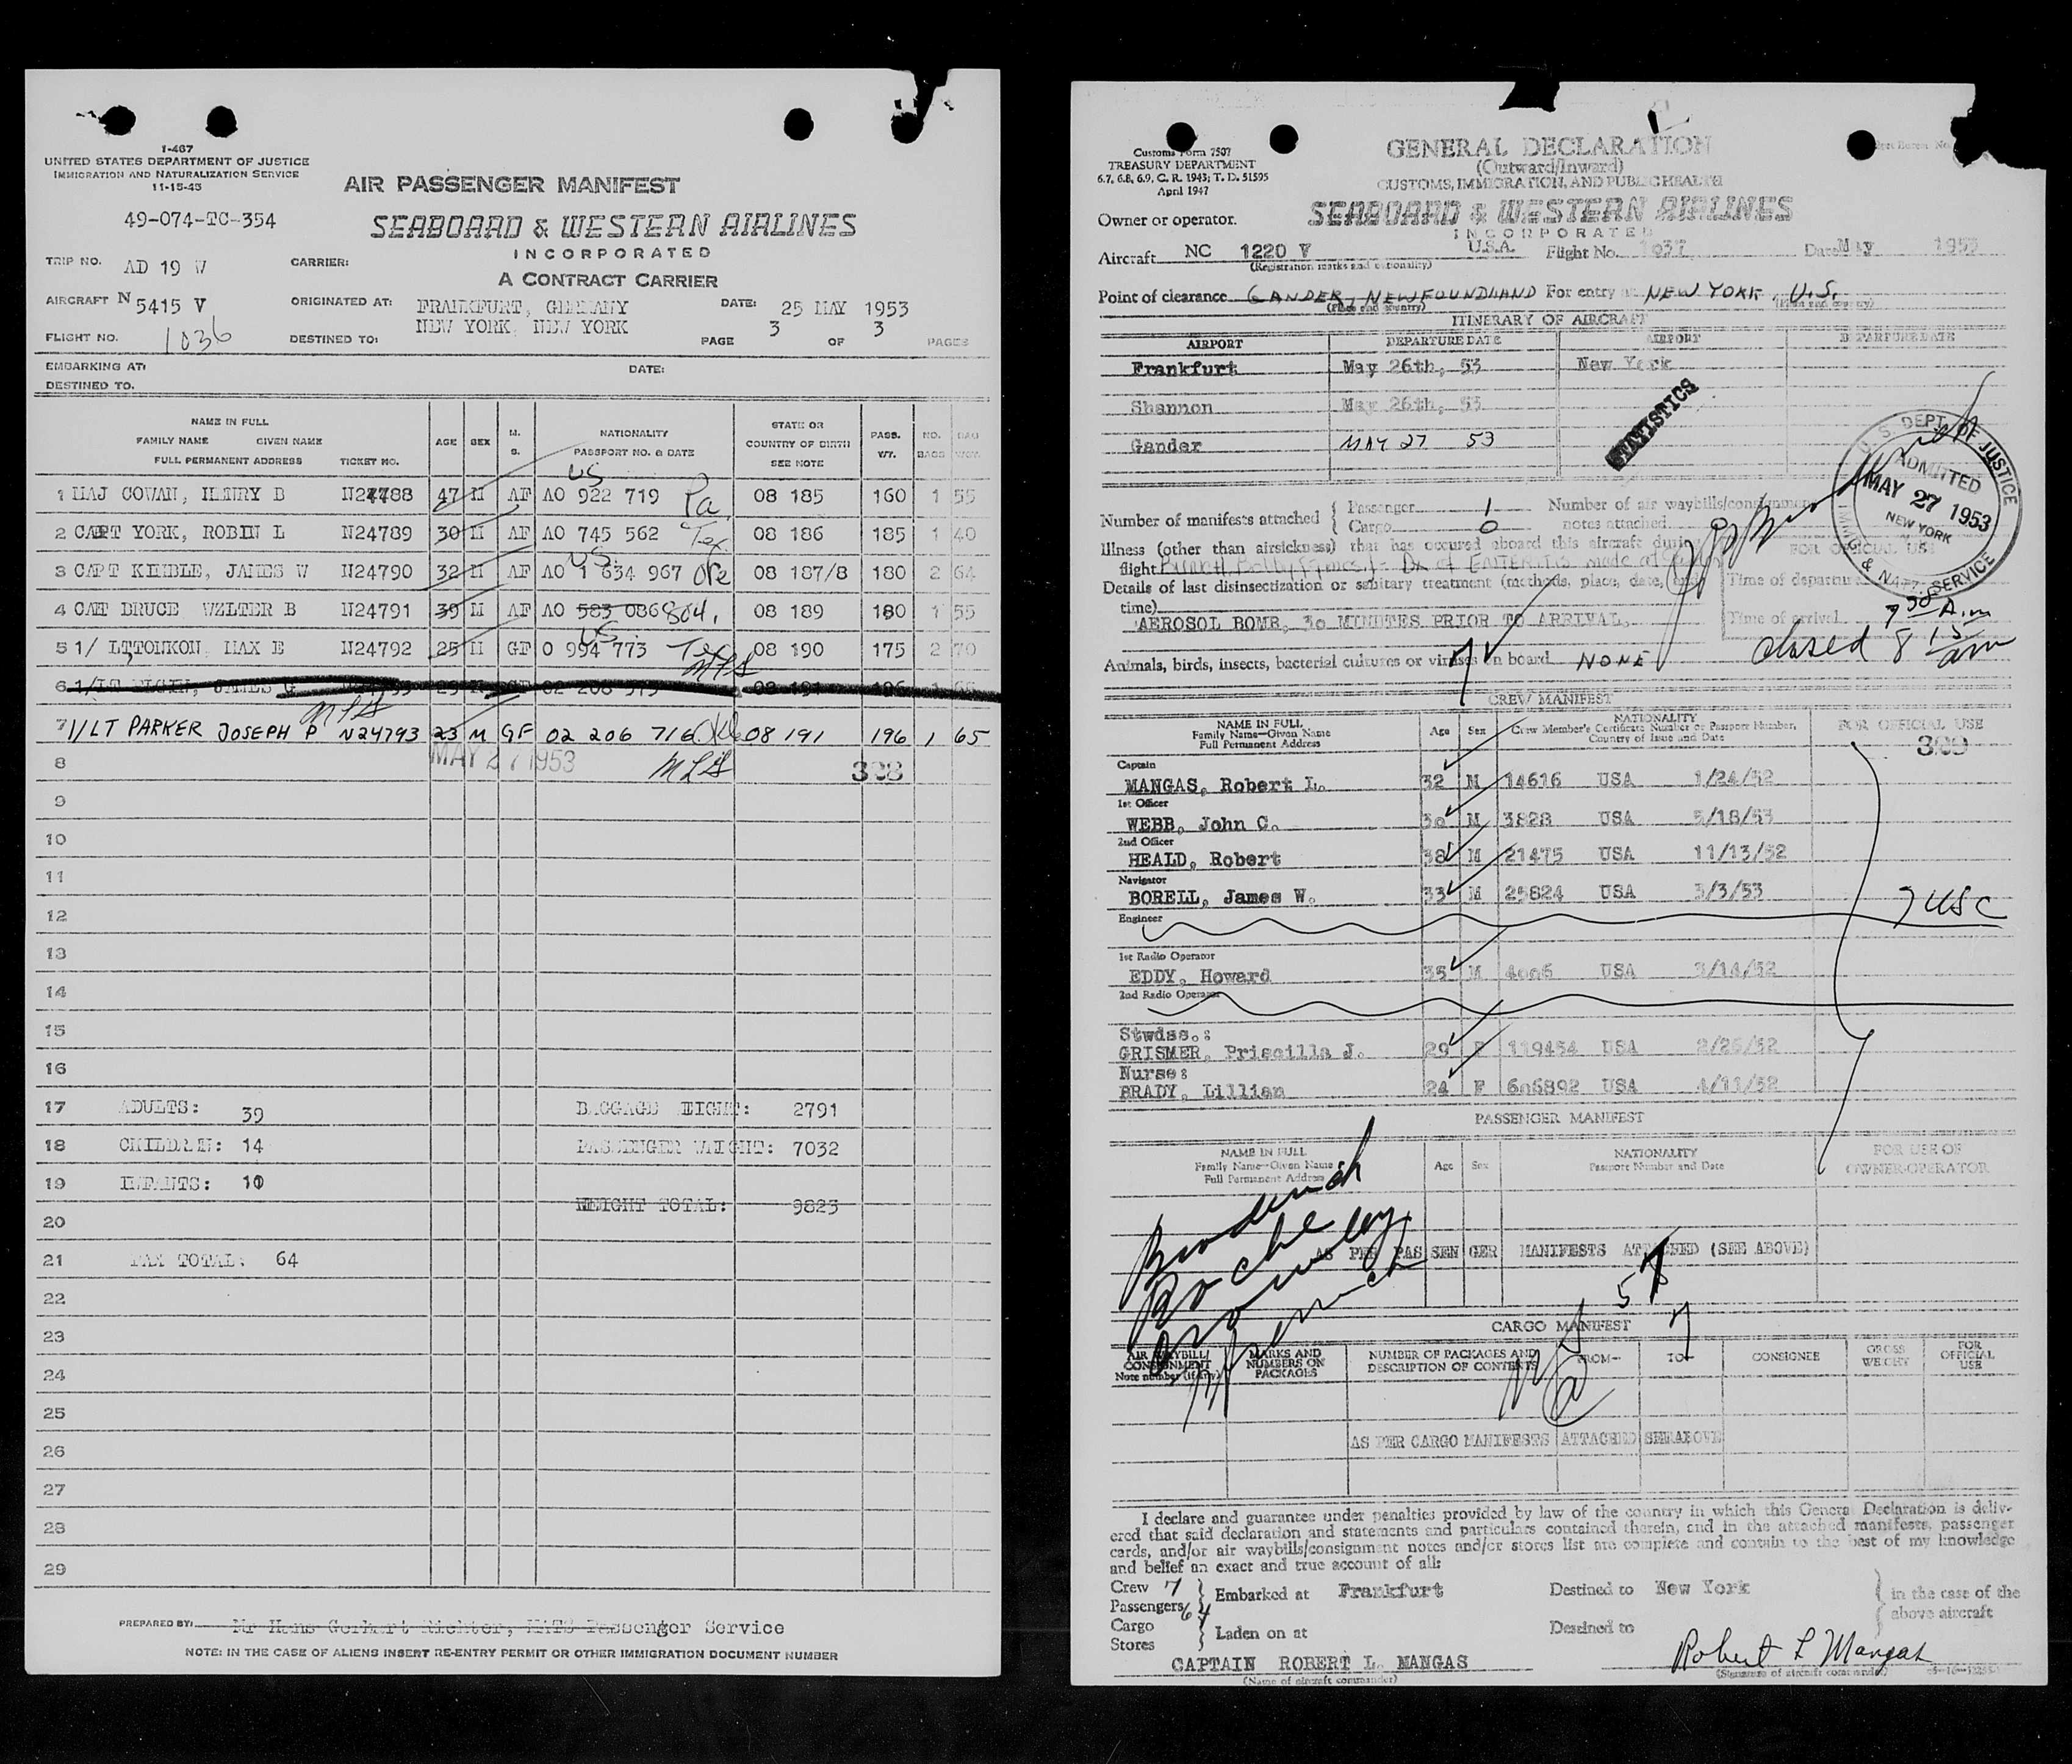 1-467
UNITED STATES DEPARTMENT OF JUSTICE
IMMIGRATION AND NATURALIZATION SERVICE
11-15-45
AIR PASSENGER MANIFEST
49-074-TC-354
SEABOARD & WESTERN AIRLINES
INCORPORATED
A CONTRACT CARRIER
TRIP NO. AD 19 W CARRIER:
AIRCRAFT N 5415 V ORIGINATED AT: FRANKFURT, GERMANY DATE: 25 MAY 1953
FLIGHT NO. 1036 DESTINED TO: NEW YORK, NEW YORK PAGE 3 OF 3 PAGES
EMBARKING AT: DATE:
DESTINED TO.
NAME IN FULL
FAMILY NAME GIVEN NAME
FULL PERMANENT ADDRESS TICKET NO. AGE SEX M. S. NATIONALITY PASSPORT NO. & DATE STATE OR COUNTRY OF BIRTH SEE NOTE PASS. WT. NO. BAGS
US
1 MAJ COWAN, HENRY B N24788 47 M AF AO 922 719 Pa. 08 185 160 1 55
2 CAPT YORK, ROBIN L N24789 30 M AF AO 745 562 Tex. 08 186 185 1 40
US
3 CAPT KIMBLE, JAMES W N24790 32 M AF AO 1 634 967 Ore 08 187/8 180 2 64
4 CAPT BRUCE WELTER B N24791 39 M AF AO 583 086 804. 08 189 180 1 55
US
5 1/ LT TONKON MAX E N24792 25 M GF O 994 773 Tex 08 190 175 2 70
MLS
6 1/LT
MLS
7 1/LT PARKER JOSEPH P N24793 23 M GF 02 206 716 08 191 196 1 65
8 MAY 27 1953 MLS 328
9
10
11
12
13
14
15
16
17 ADULTS: 39 BAGGAGE WEIGHT: 2791
18 CHILDREN: 14 PASSENGER WEIGHT: 7032
19 INFANTS: 10
WEIGHT TOTAL: 9823
20
21 PAX TOTAL: 64
22
23
24
25
26
27
28
29
PREPARED BY: Mr Hans Gerhert Richter, MATS Passenger Service
NOTE: IN THE CASE OF ALIENS INSERT RE-ENTRY PERMIT OR OTHER IMMIGRATION DOCUMENT NUMBER
Customs Form 7507
TREASURY DEPARTMENT
6.7, 6.8, 6.9, C. R. 1943; T. D. 51595
April 1947
GENERAL DECLARATION
(Outward/Inward)
CUSTOMS, IMMIGRATION, AND PUBLIC HEALTH
Owner or operator. SEABOARD & WESTERN AIRLINES
INCORPORATED
Aircraft NC 1220 V U.S.A. Flight No. 1037 Date May 1953
(Registration marks and nationality)
Point of clearance GANDER, NEWFOUNDLAND For entry at NEW YORK, U.S.
(Place and country) (Place and country)
ITINERARY OF AIRCRAFT
AIRPORT DEPARTURE DATE AIRPORT DEPARTURE DATE
Frankfurt May 26th, 53 New York
Shannon May 26th, 53
Gander MAY 27 53
STATISTICS
U. S. DEPT. OF JUSTICE
ADMITTED
MAY 27 1953
NEW YORK
IMMIG. & NATZ. SERVICE
Number of manifests attached { Passenger 1 Cargo 0 Number of air waybills/consignment notes attached
Illness (other than airsickness) that has occured aboard this aircraft during
flight
FOR OFFICIAL USE
Details of last disinsectization or sanitary treatment (methods, place, date, and
time)
Time of departure
AEROSOL BOMB, 30 MINUTES PRIOR TO ARRIVAL.
Time of arrival 7 50 A.m
closed 8 15 am
Animals, birds, insects, bacterial cultures or viruses on board NONE
CREW MANIFEST
NAME IN FULL
Family Name—Given Name
Full Permanent Address
Age Sex
NATIONALITY
Crew Member's Certificate Number or Passport Number,
Country of Issue and Date
FOR OFFICIAL USE
329
Captain
MANGAS, Robert L. 32 M 14616 USA 1/24/52
1st Officer
WEBB, John C. 30 M 3828 USA 5/18/53
2nd Officer
HEALD, Robert 38 M 21475 USA 11/13/52
Navigator
BORELL, James W. 33 M 25824 USA 3/3/53
Engineer
7 USC
1st Radio Operator
EDDY, Howard 35 M 4006 USA 3/14/52
2nd Radio Operator
Stwdss.:
GRISMER, Priscilla J. 29 F 119454 USA 2/26/52
Nurse:
BRADY, Lillian 24 F 606892 USA 4/11/52
PASSENGER MANIFEST
NAME IN FULL
Family Name—Given Name
Full Permanent Address
Age Sex
NATIONALITY
Passport Number and Date
FOR USE OF
OWNER-OPERATOR
AS PER PASSENGER MANIFESTS ATTACHED (SEE ABOVE)
CARGO MANIFEST
AIR WAYBILL/CONSIGNMENT Note number (if any) MARKS AND NUMBERS ON PACKAGES NUMBER OF PACKAGES AND DESCRIPTION OF CONTENTS FROM— TO— CONSIGNEE GROSS WEIGHT FOR OFFICIAL USE
AS PER CARGO MANIFESTS ATTACHED SEE ABOVE
I declare and guarantee under penalties provided by law of the country in which this General Declaration is deliv-
ered that said declaration and statements and particulars contained therein, and in the attached manifests, passenger
cards, and/or air waybills/consignment notes and/or stores list are complete and contain to the best of my knowledge
and belief an exact and true account of all:
Crew 7
Passengers 64 Embarked at Frankfurt Destined to New York in the case of the
above aircraft
Cargo
Stores Laden on at Destined to
CAPTAIN ROBERT L. MANGAS Robert L Mangas
(Name of aircraft commander) (Signature of aircraft commander)